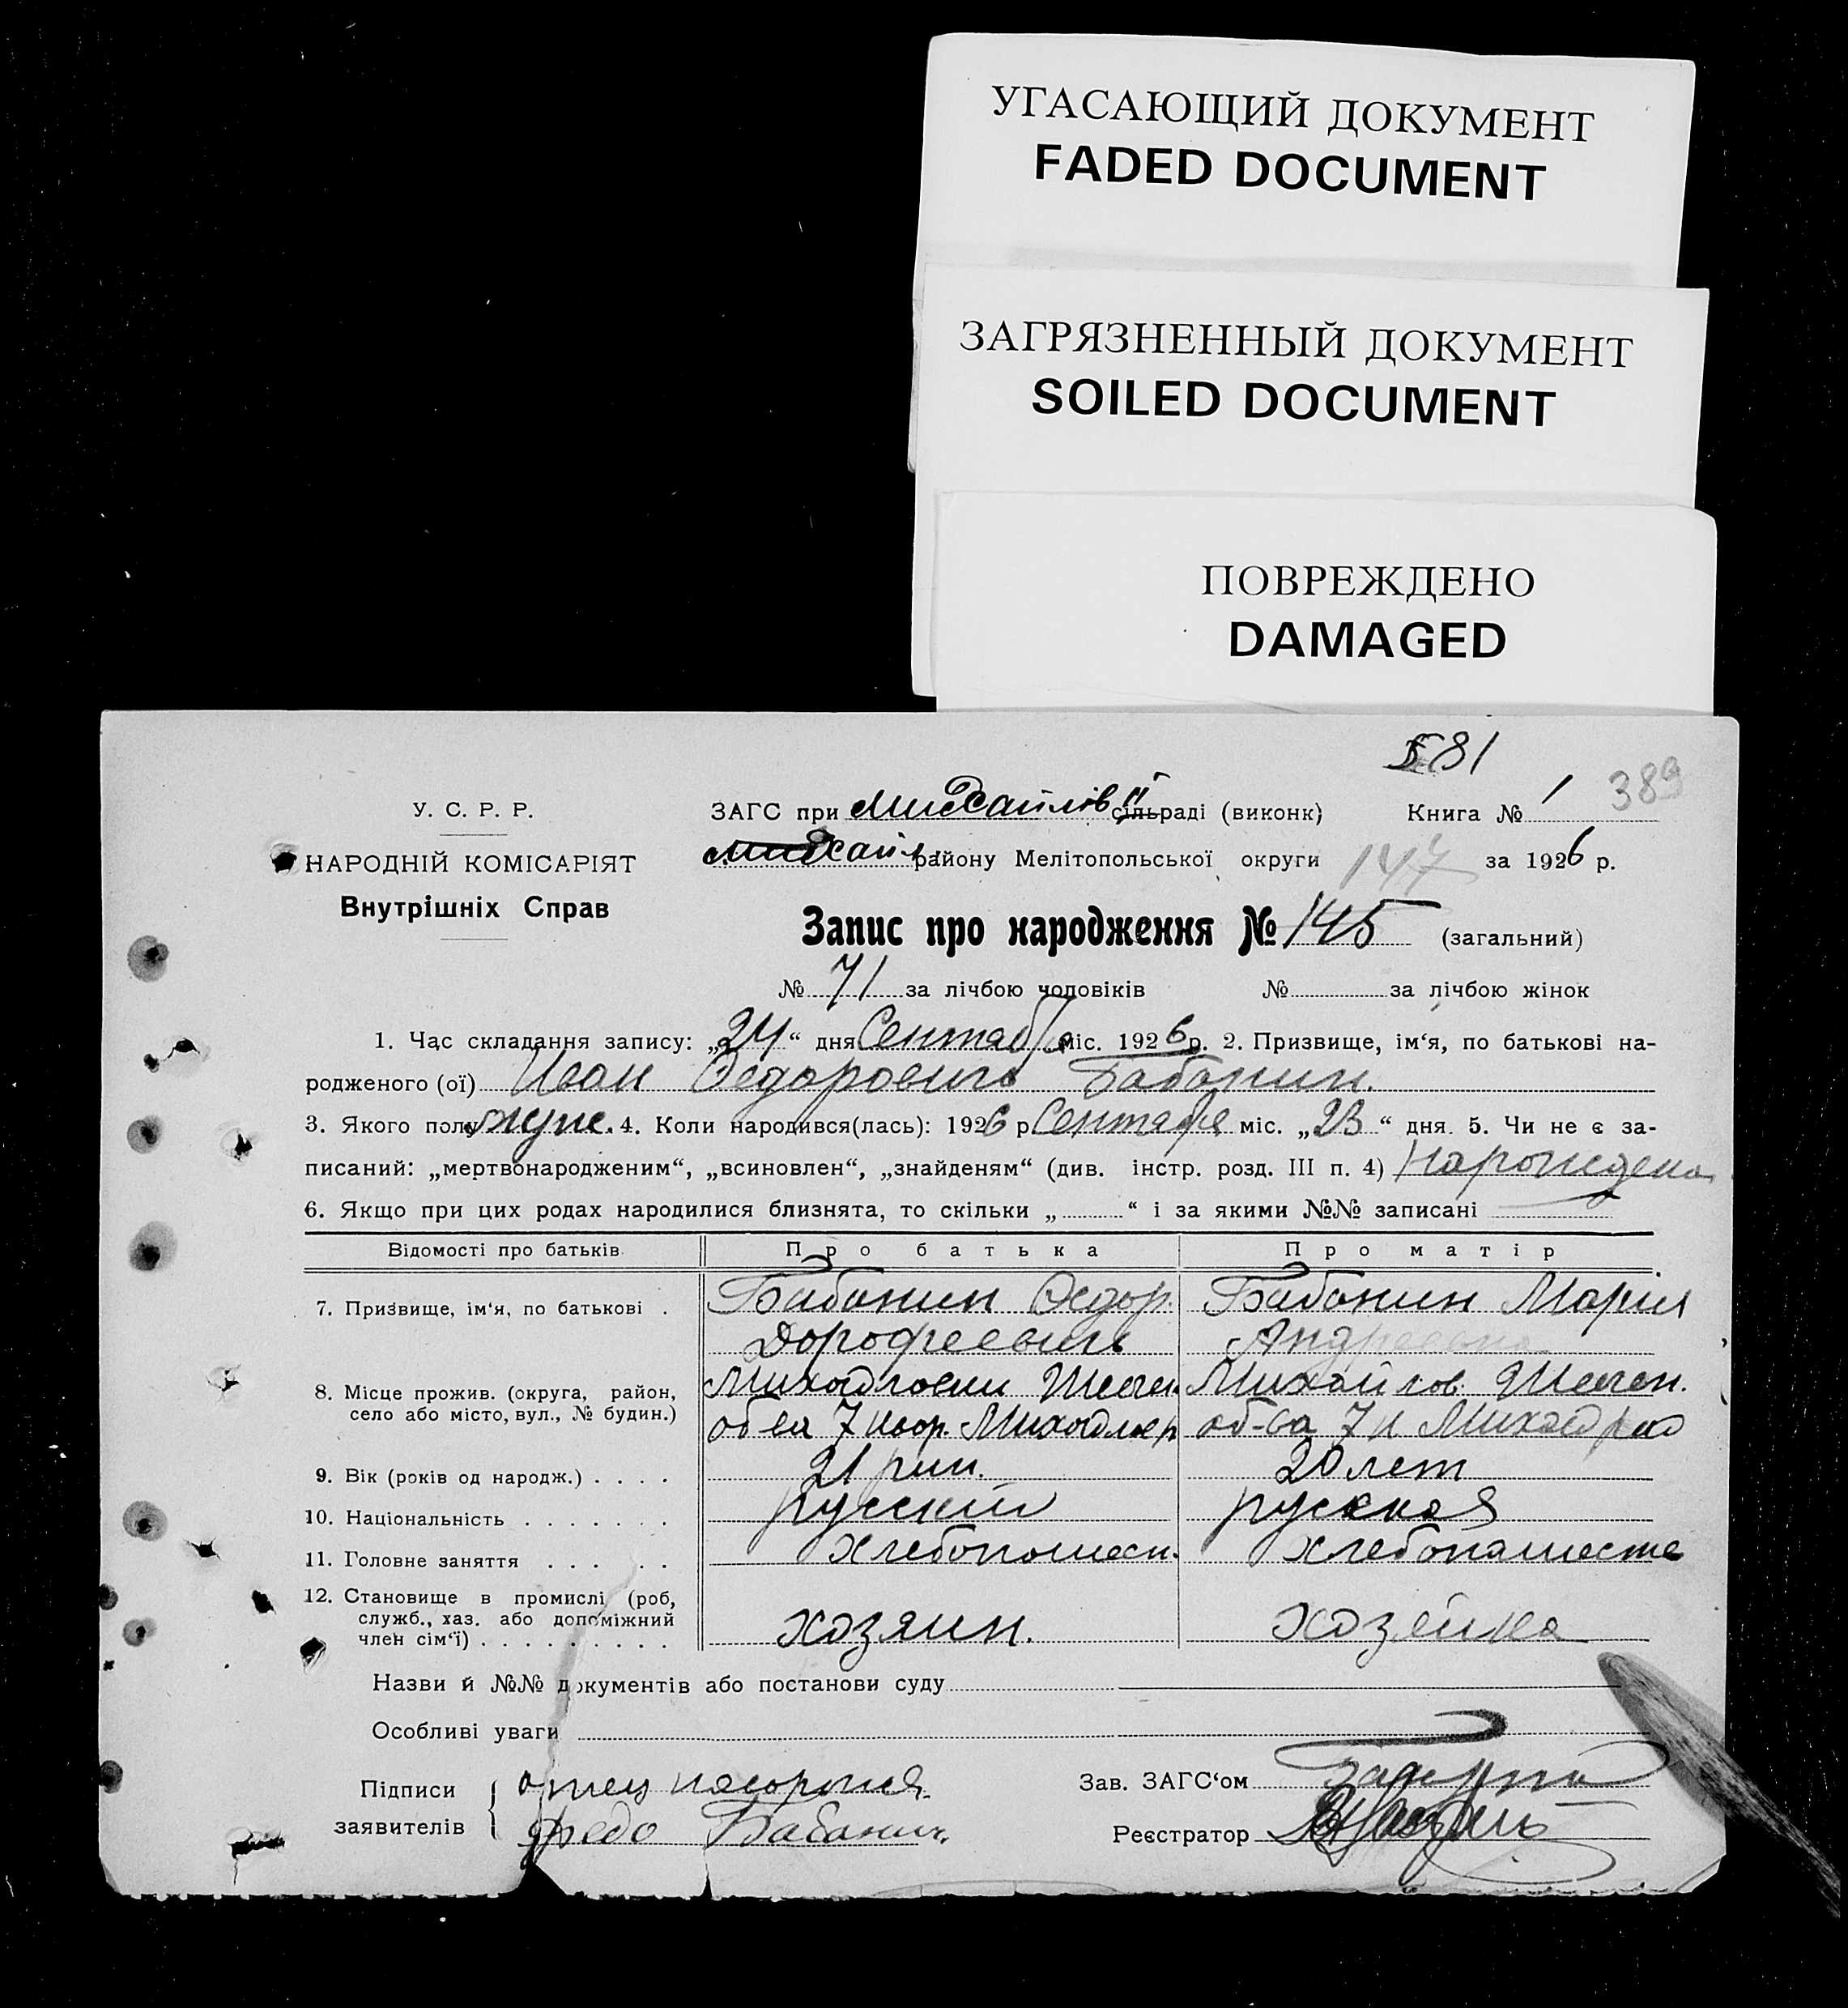 УГАСАЮЩИЙ ДОКУМЕНТ
FADED DOCUMENT
ЗАГРЯЗНЕННЫЙ ДОКУМЕНТ
SOILED DOCUMENT
ПОВРЕЖДЕНО
DAMAGED
581
389
У. С. Р. Р.
НАРОДНІЙ КОМІСАРІЯТ
Внутрішніх Справ
ЗАГС при Михайлів сільраді (виконк) Книга № 1
Михайл. району Мелітопольської округи 147 за 1926 р.
Запис про народження № 145 (загальний)
№ 71 за лічбою чоловіків № за лічбою жінок
1. Час складання запису: „24“ дня Сентяб міс. 1926 р. 2. Призвище, ім‘я, по батькові на-
родженого (ої) Иван Федорович Бабанин.
3. Якого полу муж. 4. Коли народився(лась): 1926 р Сентября міс. „23“ дня. 5. Чи не є за-
писаний: „мертвонародженим“, „всиновлен“, „знайденям“ (див. інстр. розд. III п. 4)
6. Якщо при цих родах народилися близнята, то скільки „ “ і за якими №№ записані
Відомості про батьків Про батька Про матір
7. Призвище, ім‘я, по батькові . Бабанин Федор. Бабанин Мария
Дорофеевич Андреевна
8. Місце прожив. (округа, район,
село або місто, вул., № будин.)
9. Вік (років од народж.) . . . . 21 20 лет
10. Національність . . . . . . . русский русская
11. Головне заняття . . . . . Хлебопашест. Хлебопашеств
12. Становище в промислі (роб,
служб., хаз. або допоміжний
член сім‘ї) . . . . . . . . . . хозяин. хозяйка
Назви й №№ документів або постанови суду
Особливі уваги
Підписи
заявителів
отец
Федо Бабанин
Зав. ЗАГС‘ом
Реєстратор